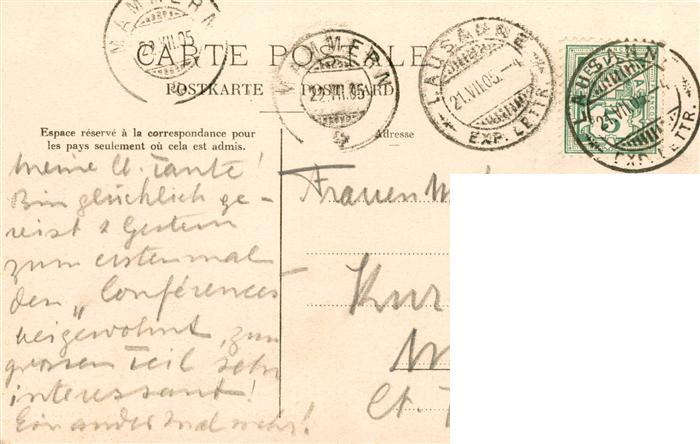 MAMMERN
22.VII.05
CARTE POSTALE
POSTKARTE
MAMMERN
22.VII.05
LAUSANNE
21.VII.05.-4
EXP. LETTR.
LAUSANNE
21.VII.05.-4
EXP. LETTR.
5
Espace réservé à la correspondance pour
les pays seulement où cela est admis.
Adresse
Meine lb. Tante!
Bin glücklich ge-
reist & Gestern
zum erstenmal
den „Conférences"
beigewohnt, zum
grossen Teil sehr
interessant!
Ein ander Mal mehr!
Frauen
Kur
Ct.